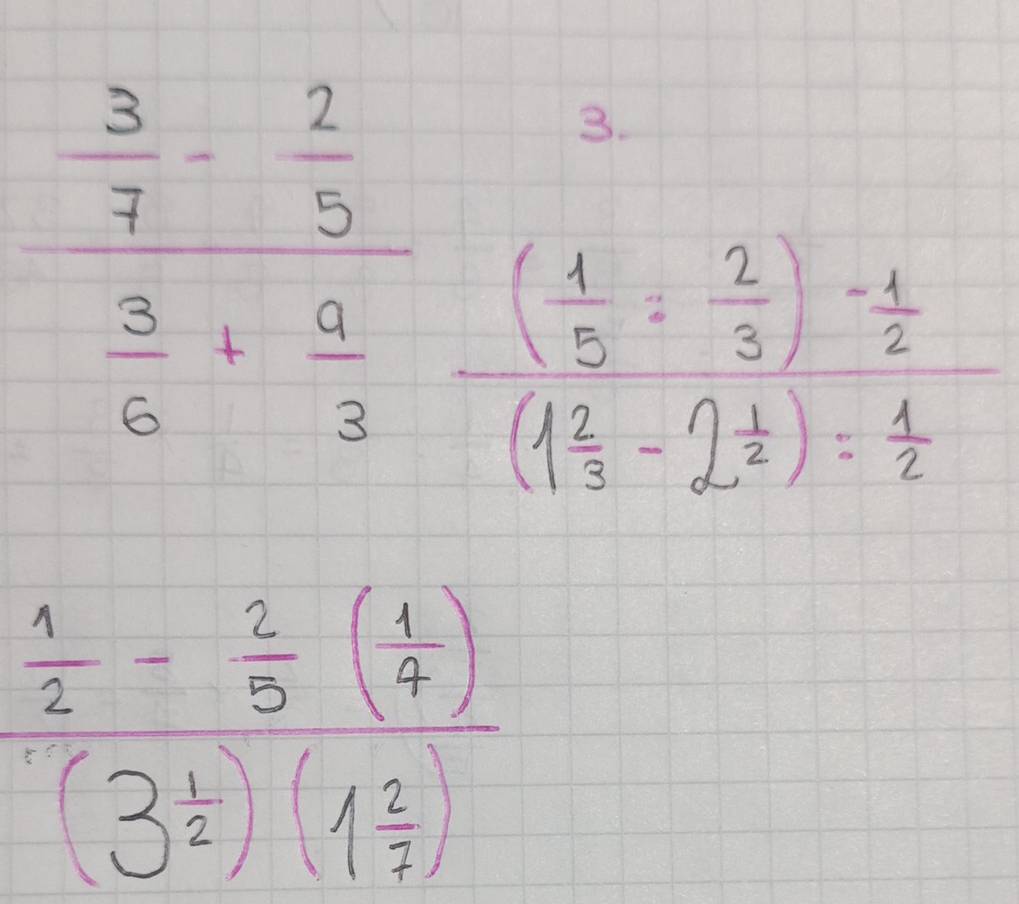 3/7 - 2/5
3/6 + 9/3
3.
(1/5 : 2/3) - 1/2
(1 2/3 - 2 1/2) : 1/2
1/2 - 2/5 (1/4)
(3 1/2) (1 2/7)